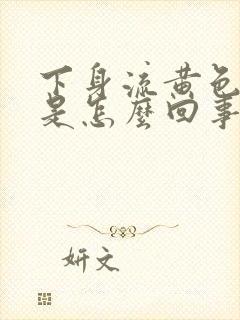 下身流黄色
是怎麽回事
妍文